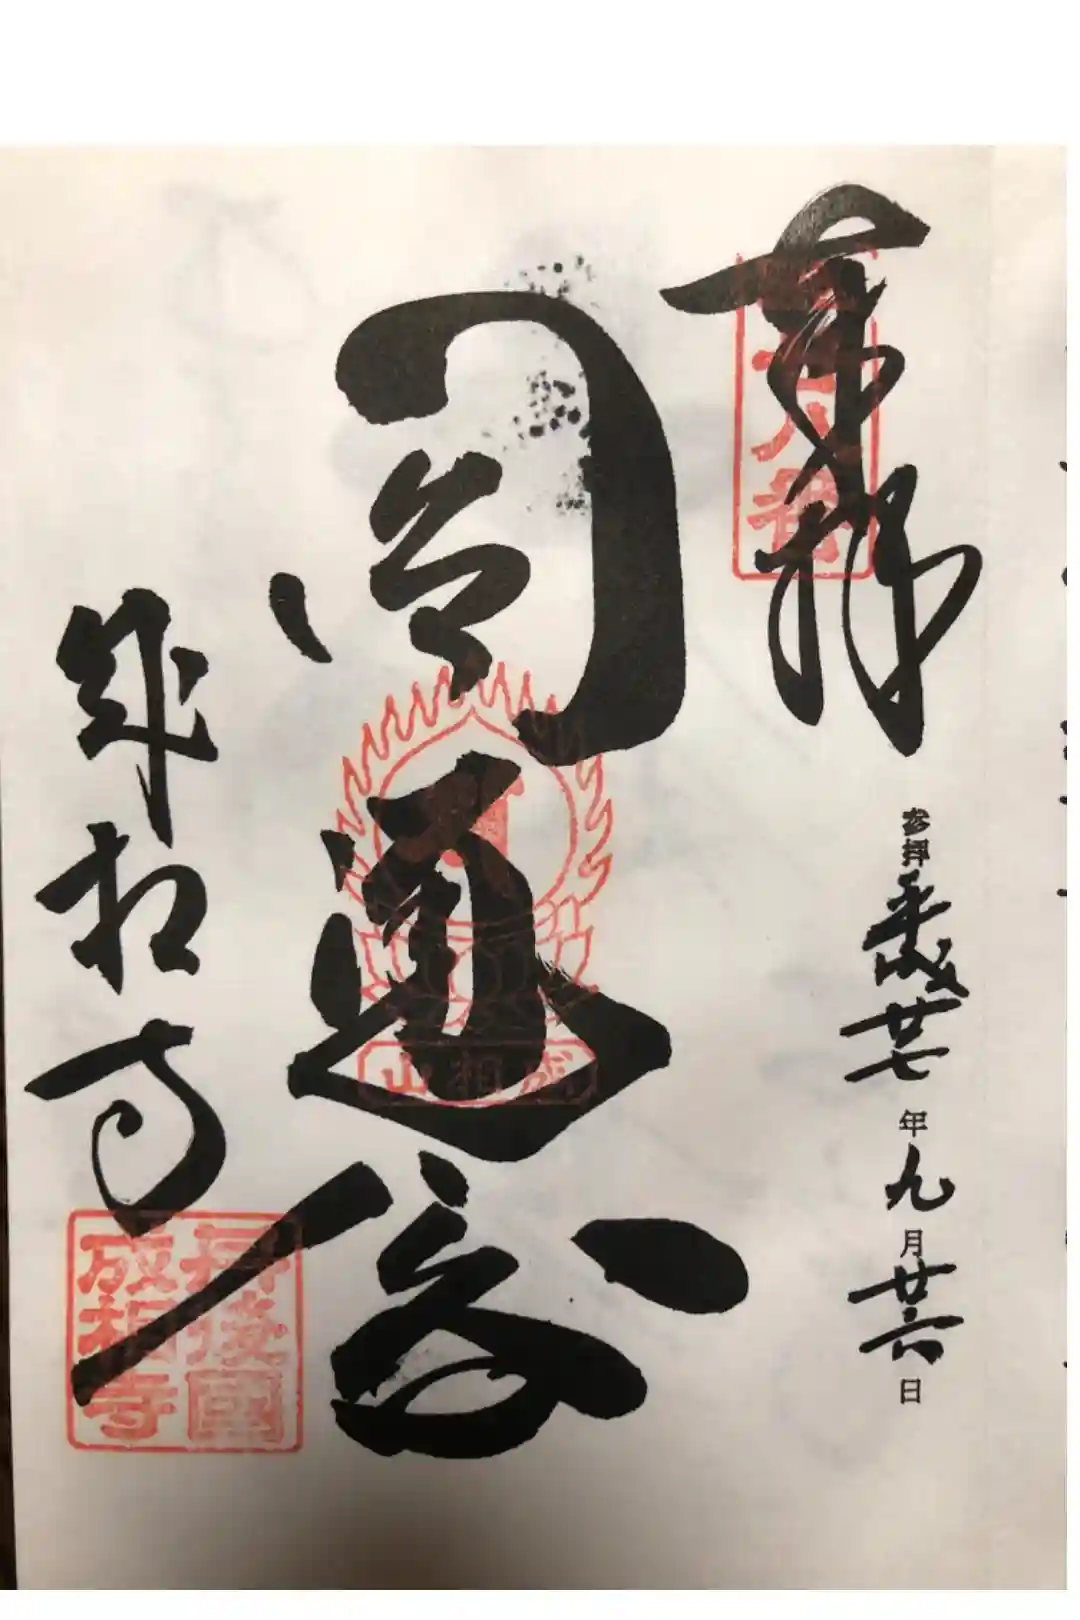 奉拝
八番
参拝平成廿七年九月廿六日
圓通
成相山
成相寺
丹後國
成相寺